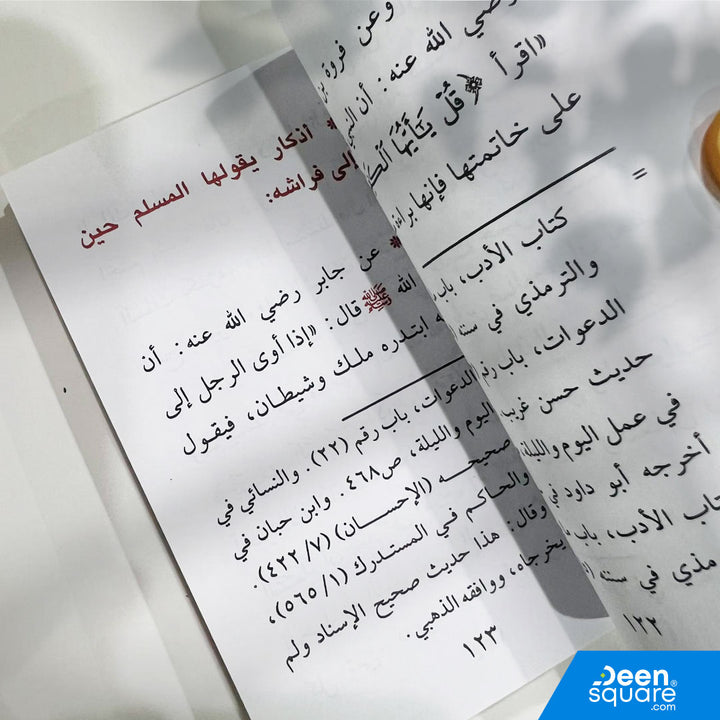 وعن فروة بن
رضي الله عنه: أن النبي
«اقرأ ﴿قُلْ يَٰٓأَيُّهَا
على خاتمتها فإنها
=
كتاب الأدب، باب
والترمذي في سننه
الدعوات، باب رقم
حديث حسن غريب
في عمل اليوم والليلة
أخرجه أبو داود في
الأدب، باب
في سننه
١٢٢
* أذكار يقولها المسلم حين
إلى فراشه:
* عن جابر رضي الله عنه: أن
الله ﷺ قال: «إذا أوى الرجل إلى
ابتدره ملك وشيطان، فيقول
الدعوات، باب رقم (٢٢). والنسائي في
اليوم والليلة، ص٤٦٨. وابن حبان في
صحيحه (الإحسان) (٧/ ٤٢٢).
والحاكم في المستدرك (١/ ٥٦٥)،
وقال: هذا حديث صحيح الإسناد ولم
يخرجاه، ووافقه الذهبي.
١٢٣
Deen
square®
.com